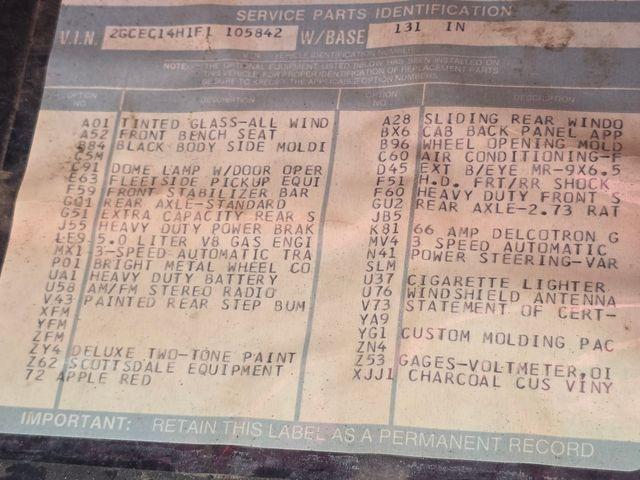 SERVICE PARTS IDENTIFICATION
V.I.N. 2GCEC14H1F1 105842 W/BASE 131 IN
V.I.N. VEHICLE IDENTIFICATION NUMBER
NOTE: THE OPTIONAL EQUIPMENT LISTED BELOW HAS BEEN INSTALLED ON
THIS VEHICLE. FOR PROPER IDENTIFICATION OF REPLACEMENT PARTS
BE SURE TO THE APPLICABLE OPTION NUMBERS.
OPTION NO. DESCRIPTION
A01 TINTED GLASS-ALL WIND
A52 FRONT BENCH SEAT
B84 BLACK BODY SIDE MOLDI
C5M
C91 DOME LAMP W/DOOR OPER
E63 FLEETSIDE PICKUP EQUI
F59 FRONT STABILIZER BAR
GQ1 REAR AXLE-STANDARD
G51 EXTRA CAPACITY REAR S
J55 HEAVY DUTY POWER BRAK
LE9 5.0 LITER V8 GAS ENGI
MX1 3-SPEED-AUTOMATIC TRA
P01 BRIGHT METAL WHEEL CO
UA1 HEAVY DUTY BATTERY
U58 AM/FM STEREO RADIO
V43 PAINTED REAR STEP BUM
XFM
YFM
ZFM
ZY4 DELUXE TWO-TONE PAINT
Z62 SCOTTSDALE EQUIPMENT
72 APPLE RED
OPTION NO. DESCRIPTION
A28 SLIDING REAR WINDO
BX6 CAB BACK PANEL APP
B96 WHEEL OPENING MOLD
C60 AIR CONDITIONING-F
D45 EXT B/EYE MR-9X6.5
F51 H.D. FRT/RR SHOCK
F60 HEAVY DUTY FRONT S
GU2 REAR AXLE-2.73 RAT
JB5
K81 66 AMP DELCOTRON G
MV4 3 SPEED AUTOMATIC
N41 POWER STEERING-VAR
SLM
U37 CIGARETTE LIGHTER
U76 WINDSHIELD ANTENNA
V73 STATEMENT OF CERT-
YA9
YG1 CUSTOM MOLDING PAC
ZN4
Z53 GAGES-VOLTMETER,OI
XJJ1 CHARCOAL CUS VINY
IMPORTANT: RETAIN THIS LABEL AS A PERMANENT RECORD